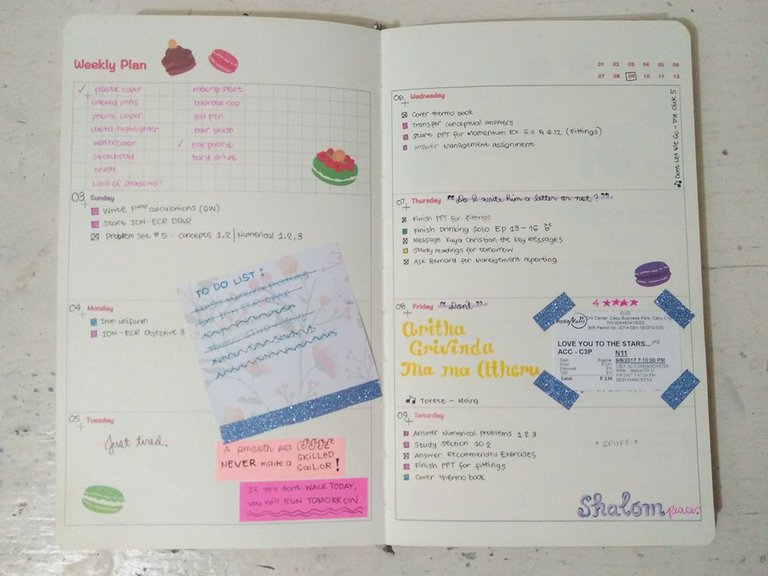 Weekly Plan
plastic cover
moving skirt
colored pens
baseball cap
phone cover
gel pen
pastel highlighter
hair brush
watercolor
earphone
sketchpad
hard drive
brush
Land of shadows!
03 Sunday
Write calculations (GW)
Start ION-ECR
Problem Set # 5 : Concepts 1,2 | Numerical 1,2,3
TO DO LIST :
04 Monday
Iron uniform
ION-ECR Objective 3
05 Tuesday
Just tired.
A smooth sea
NEVER made a SKILLED
SAILOR!
If you don't WALK TODAY,
you will RUN TOMORROW.
01 02 03 04 05 06
07 08 09 10 11 12
06 Wednesday
Cover thermo book
Transfer conceptual answers
Start PPT for Momentum Ex. 6.11 & 6.12 (Fittings)
Answer Management assignment
Don't Let Me Go - The Click 5
07 Thursday "Do I write him a letter or not?"
Finish PPT for fittings
Finish Drinking Solo Ep 13 - 16
Message Kuya Christian the key messages
Study readings for tomorrow
Ask for Management reporting
08 Friday "Don't"
Aritha
Grivinda
Ma ma Atheru
Torete - Moira
4 ★★★★
LOVE YOU TO THE STARS...
ACC - C3P
N11
9/8/2017 7:10:00 PM
09 Saturday
Answer Numerical problems 1 2 3
Study section 10.2
Answer Recommended Exercises
Finish PPT for fittings
Cover thermo book
* GRUFF *
Shalom peace.